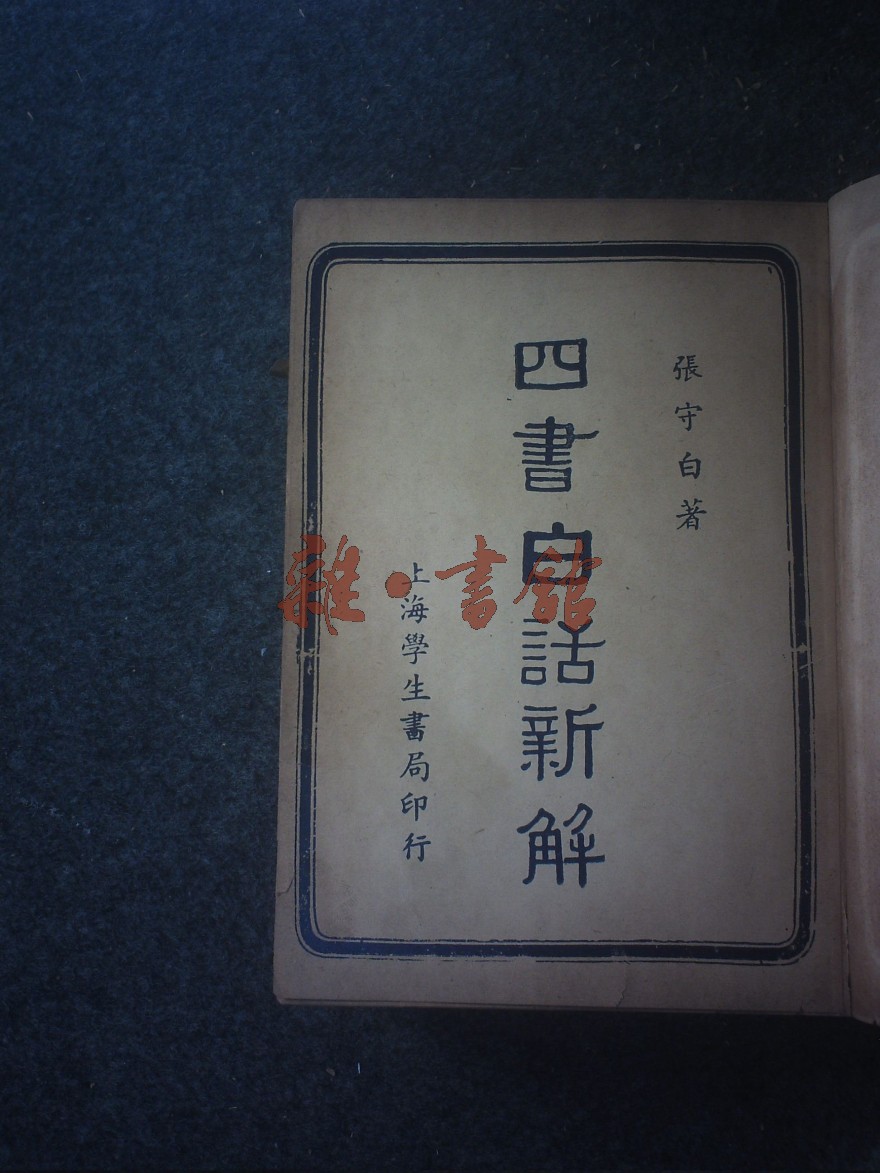 張守白著
四書白話新解
上海學生書局印行
雜·書館